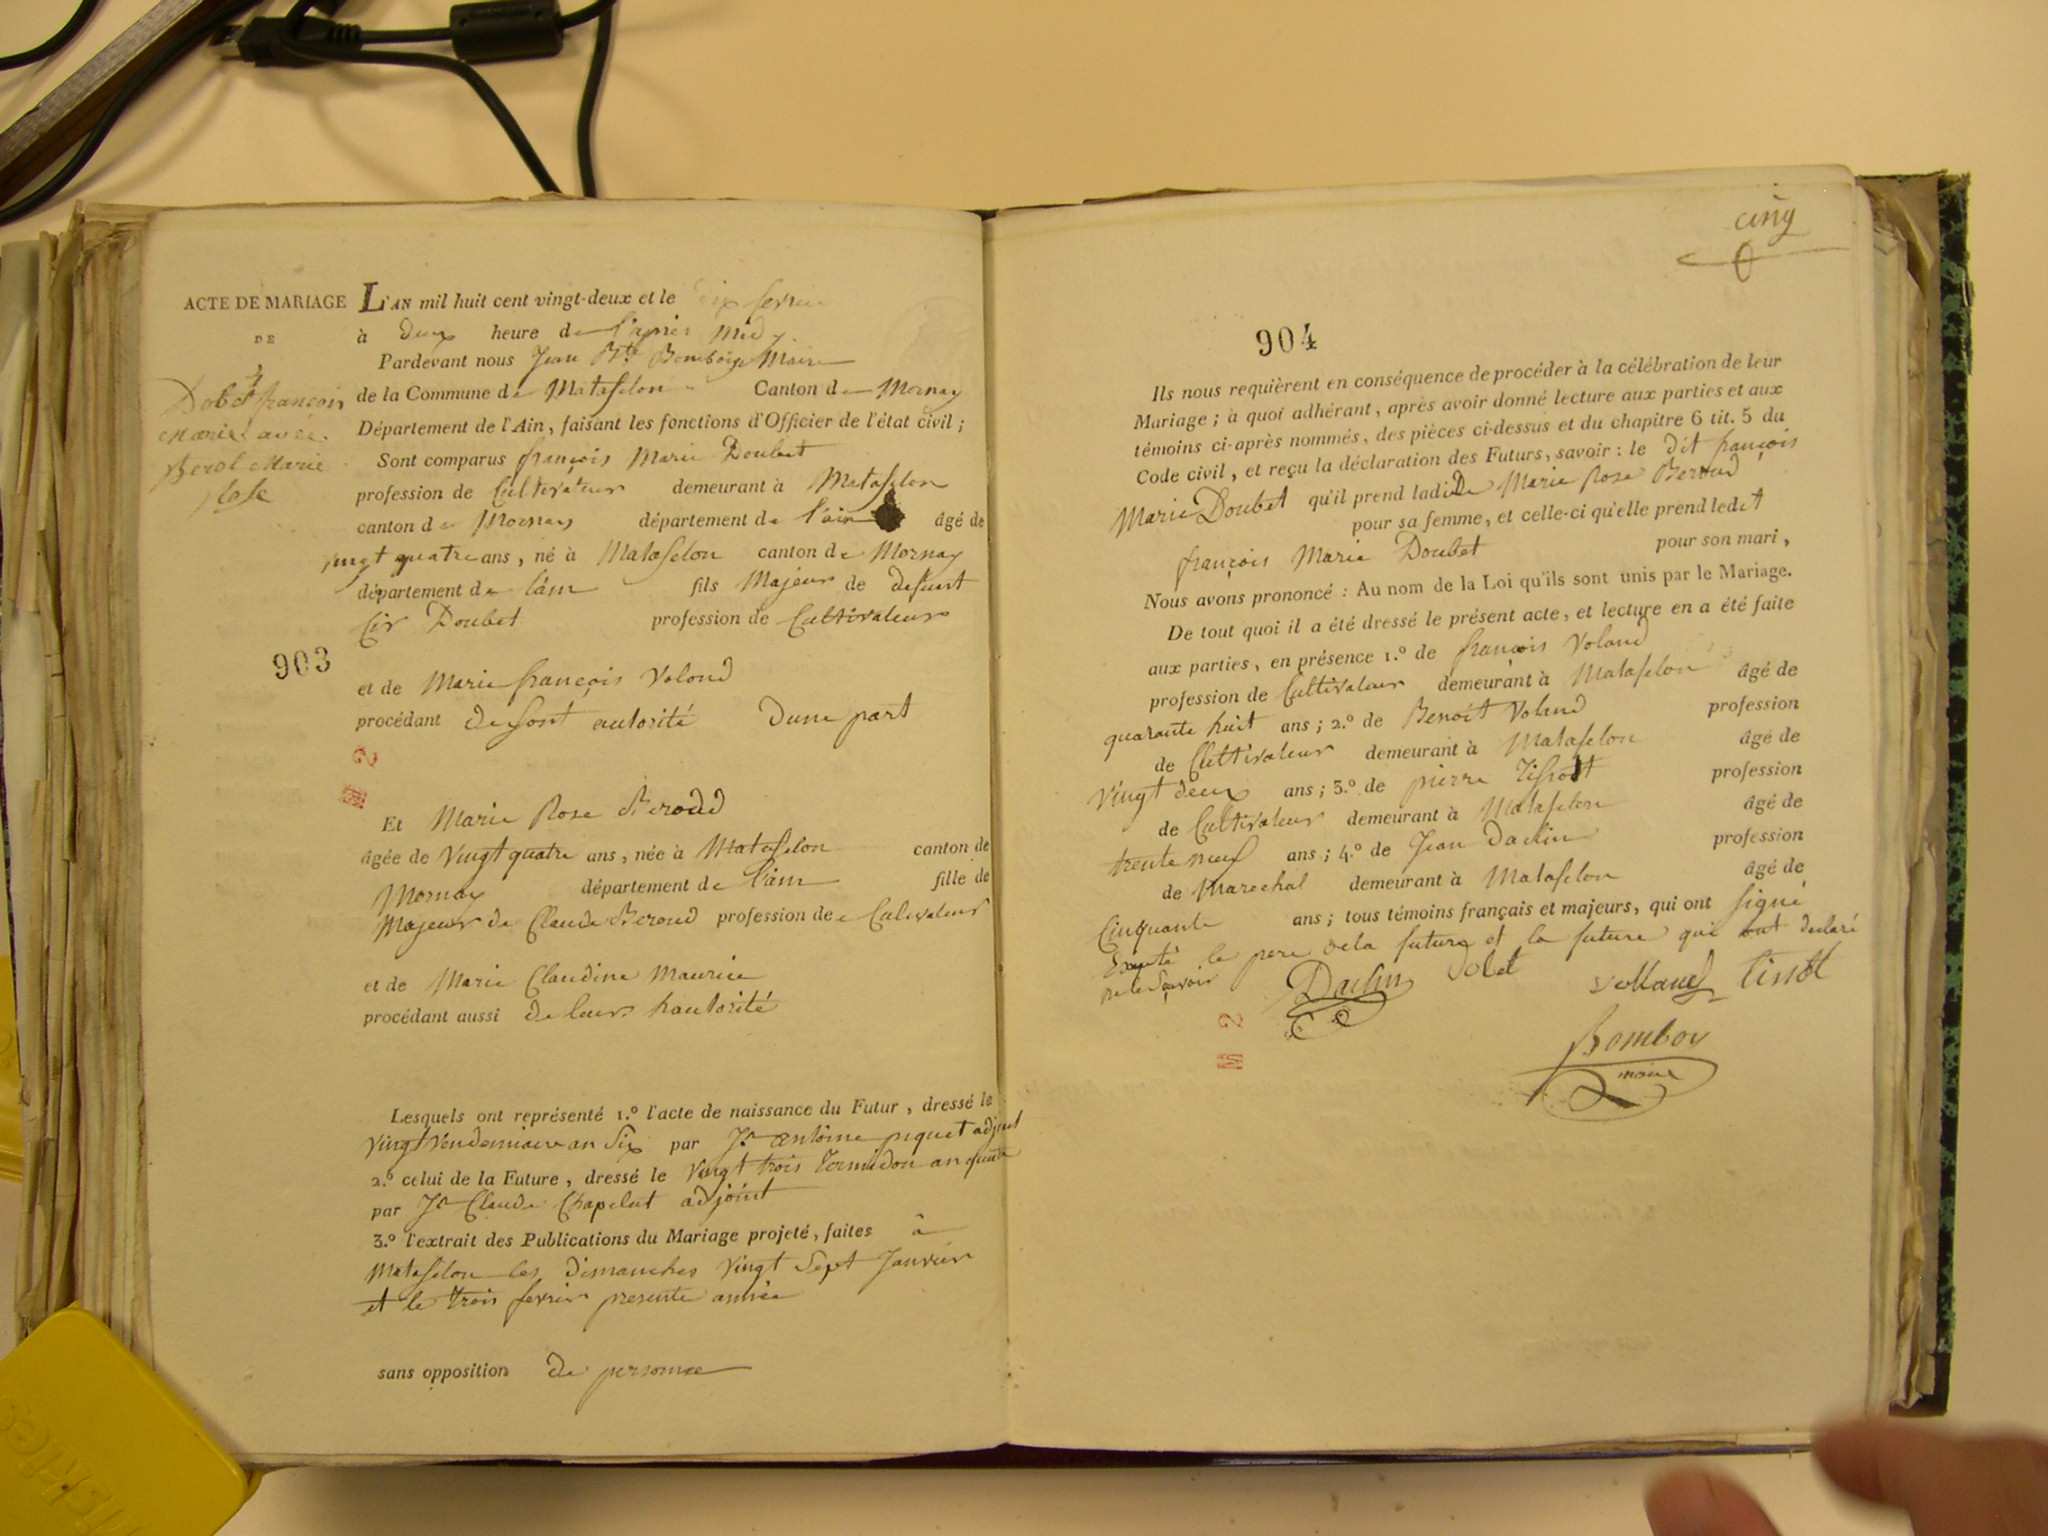 ACTE DE MARIAGE
DE
Dobet françois
Marie avec
Berod Marie
Rose
903
L'AN mil huit cent vingt-deux et le dix fevrier
à deux heure de l'après Midy
Pardevant nous Jean Bte Bomboy Maire
de la Commune de Matafelon Canton de Mornay
Département de l'Ain, faisant les fonctions d'Officier de l'état civil ;
Sont comparus françois Marie Doubet
profession de Cultivateur demeurant à Matafelon
canton de Mornay département de l'ain âgé de
vingt quatre ans, né à Matafelon canton de Mornay
département de l'ain fils Majeur de defunt
Cir Doubet profession de Cultivateur
et de Marie françois Volond
procédant de sont autorité dune part
2
Et Marie Rose Beroud
âgée de Vingt quatre ans, née à Matafelon canton de
Mornay département de l'ain fille de
Majeur de Claude Beroud profession de Culivateur
et de Marie Claudine Maurice
procédant aussi de leurs hautorité
Lesquels ont représenté 1.º l'acte de naissance du Futur, dressé le
Vingt Vendemiaire an Six par Jn antoine piquet adjoint
2.º celui de la Future, dressé le Vingt trois Termidor an quatre
par Jn Claude Chapelut adjoint
3.º l'extrait des Publications du Mariage projeté, faites à
Matafelon les dimanches Vingt Sept Janvier
et le trois fevrier presente année
sans opposition de personne
cinq
904
Ils nous requièrent en conséquence de procéder à la célébration de leur
Mariage ; à quoi adhérant, après avoir donné lecture aux parties et aux
témoins ci-après nommés, des pièces ci-dessus et du chapitre 6 tit. 5 du
Code civil, et reçu la déclaration des Futurs, savoir : le dit françois
Marie Doubet qu'il prend ladite Marie Rose Beroud
pour sa femme, et celle-ci qu'elle prend ledet
françois Marie Doubet pour son mari,
Nous avons prononcé : Au nom de la Loi qu'ils sont unis par le Mariage.
De tout quoi il a été dressé le présent acte, et lecture en a été faite
aux parties, en présence 1.º de françois Voland
profession de Cultivateur demeurant à Matafelon âgé de
quarante huit ans ; 2.º de Benoit Voland profession
de Cultivateur demeurant à Matafelon âgé de
Vingt deux ans ; 3.º de pierre Tissot profession
de Cultivateur demeurant à Matafelon âgé de
trente neuf ans ; 4.º de Jean Daclin profession
de Marechal demeurant à Matafelon âgé de
Cinquante ans ; tous témoins français et majeurs, qui ont signé
Excepté le pere dela future et la future qui ont declaré
ne le Savoir Daclin Dobet Volland Tissot
2
Bomboy
maire